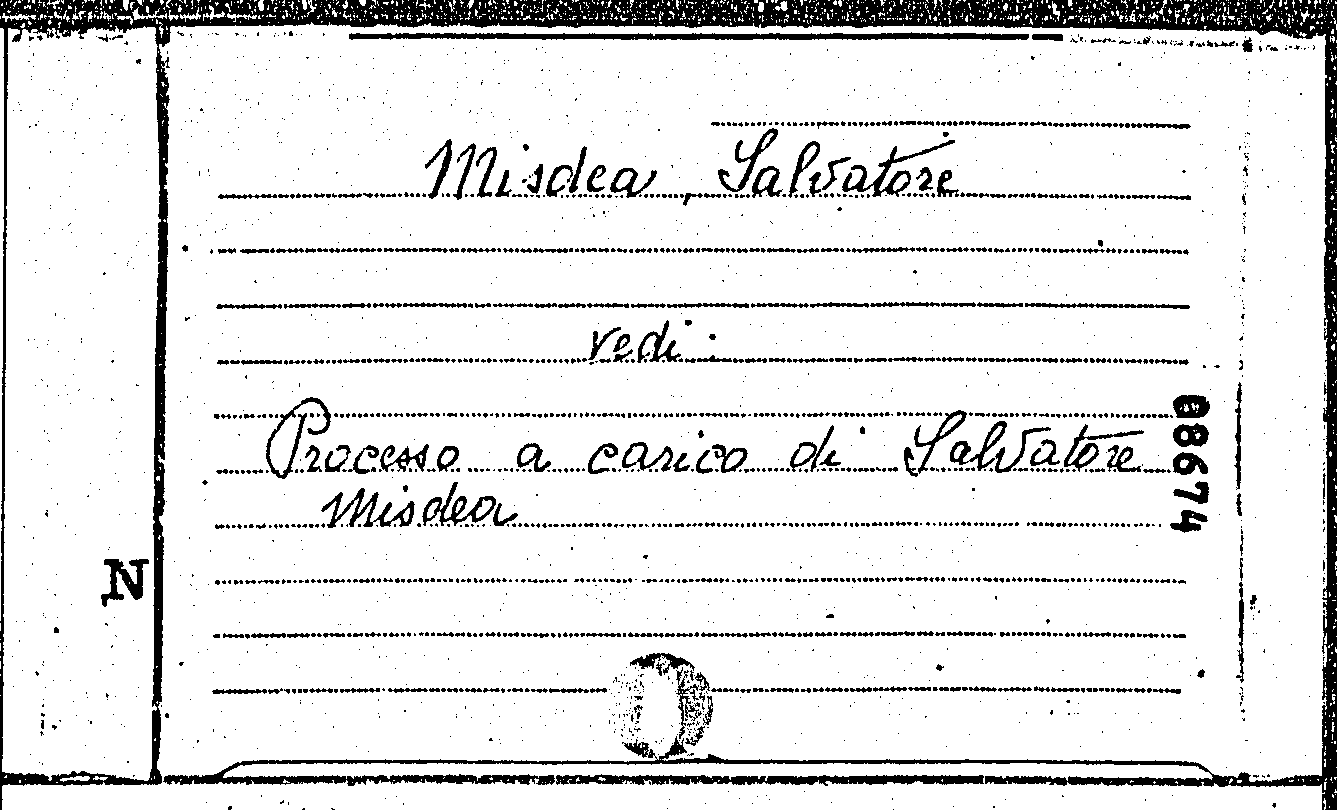 Misdea, Salvatore
vedi:
Processo a carico di Salvatore
Misdea
88674
N